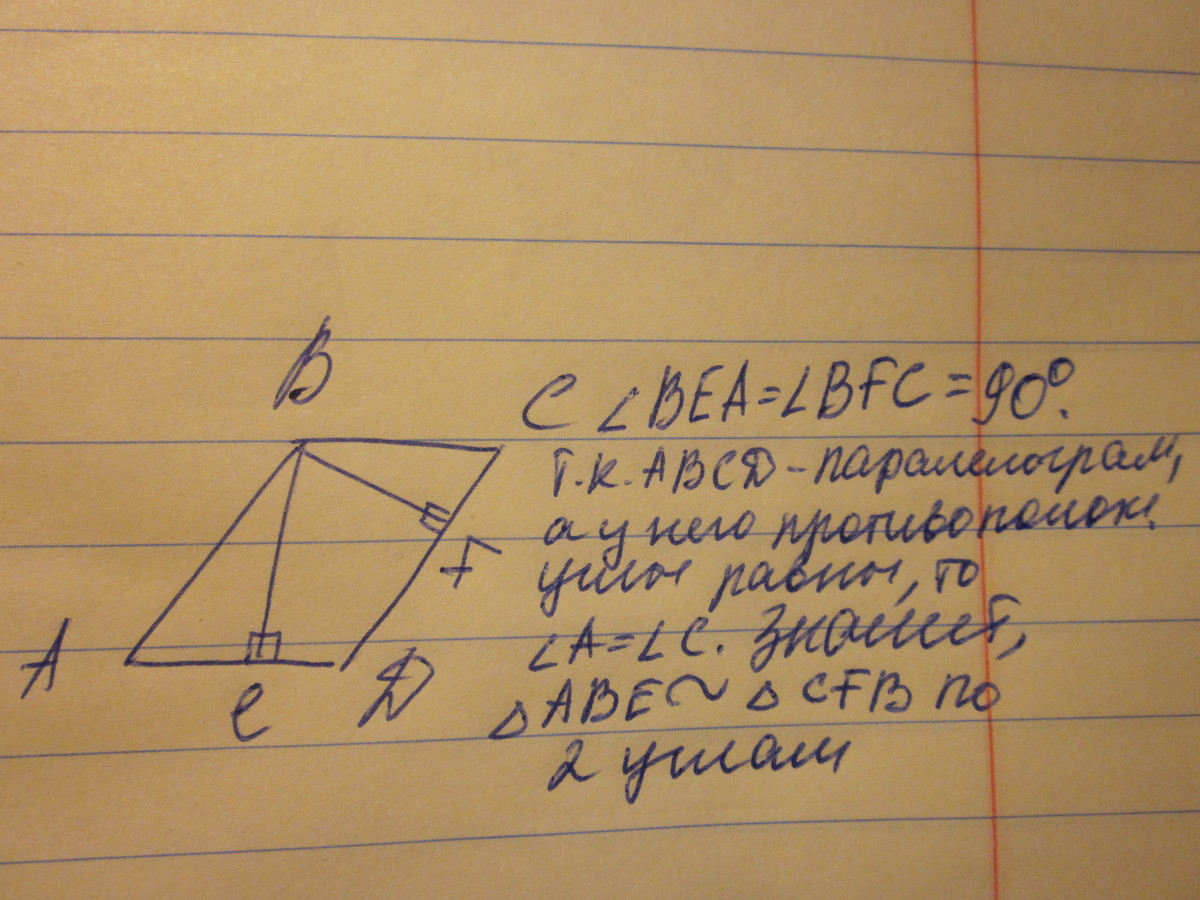 B
C ∠BEA=∠BFC=90°.
Т.к. ABCD-паралелограм,
а у него противополож.
углы равны, то
F
∠A=∠C. Значит,
A
△ABE~△CFB по
e D
2 углам